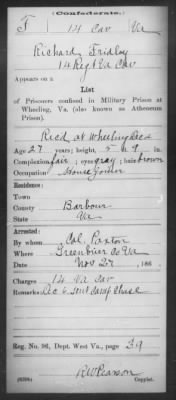 (Confederate.)
F 14 Cav Va
Richard Fridley
14 Regt Va Cav
Appears on a
List
of Prisoners confined in Military Prison at
Wheeling, Va. (also known as Atheneum
Prison).
Recd at Wheeling Dec 5
Age 27 years; height, 5 ft. 9 in.
Complexion fair; eyes gray; hair brown
Occupation House Joiner
Residence:
Town
County Barbour
State Va
Arrested:
By whom Col. Paxton
Where Greenbrier Co Va
Date Nov 27, 186 .
Charges 14 Va Cav
Remarks Dec 6 sent Camp Chase
Reg. No. 96, Dept. West Va., page 39
RW Pearson
Copyist.